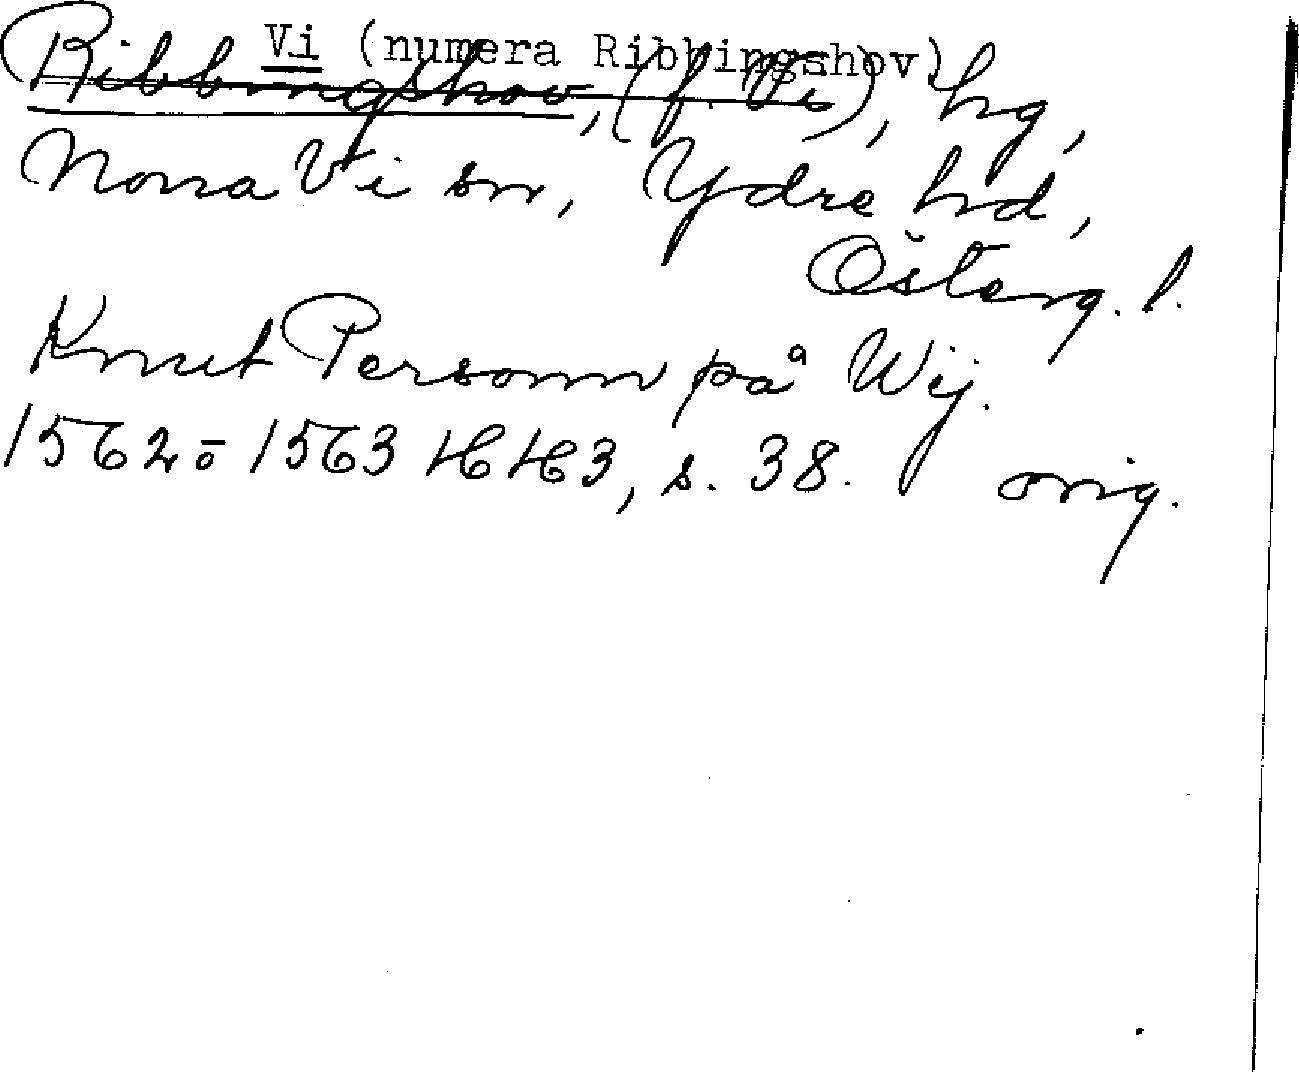 Vi (numera Ribbingshov)
Ribbingshov, (f. Vi), hg,
Norra Vi sn, Ydre hd,
Österg. l.
Knut Personn på Wij.
1562 o 1563 HH3, s. 38. orig.